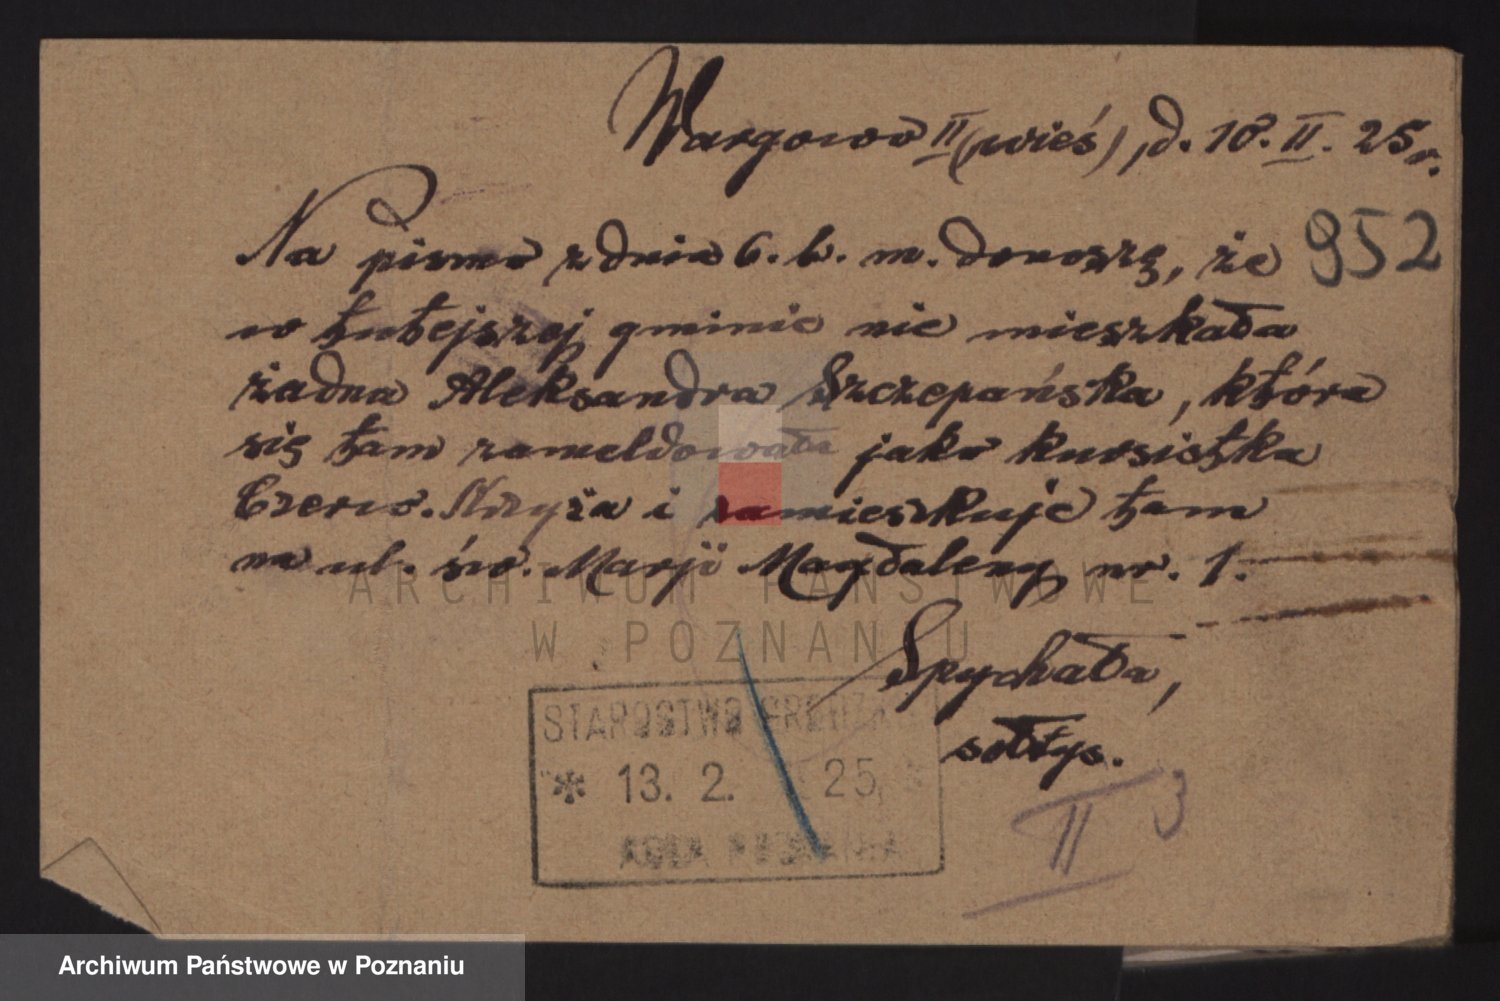 Wargowo II (wieś), d. 10. II. 25 r.
Na pismo z dnia 6. b. m. donoszę, że
952
w tutejszej gminie nie mieszkała
żadna Aleksandra Szczepańska, która
się tam zameldowała jako kursistka
Czerw. Krzyża i zamieszkuje tam
na ul. św. Marji Magdaleny nr. 1.
ARCHIWUM PAŃSTWOWE
W POZNANIU
Spychała,
sołtys.
STAROSTWO GRODZK
* 13. 2. 25
II 3
Archiwum Państwowe w Poznaniu